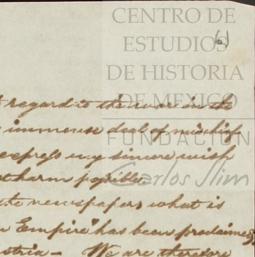 CENTRO DE
ESTUDIOS
DE HISTORIA
DE MEXICO
FUNDACIÓN
Carlos Slim
6)
regard to the war in the
immense deal of mischief
express my sincere wish
harm possible
the newspapers what is
Empire" has been proclaimed
stria - We are therefore